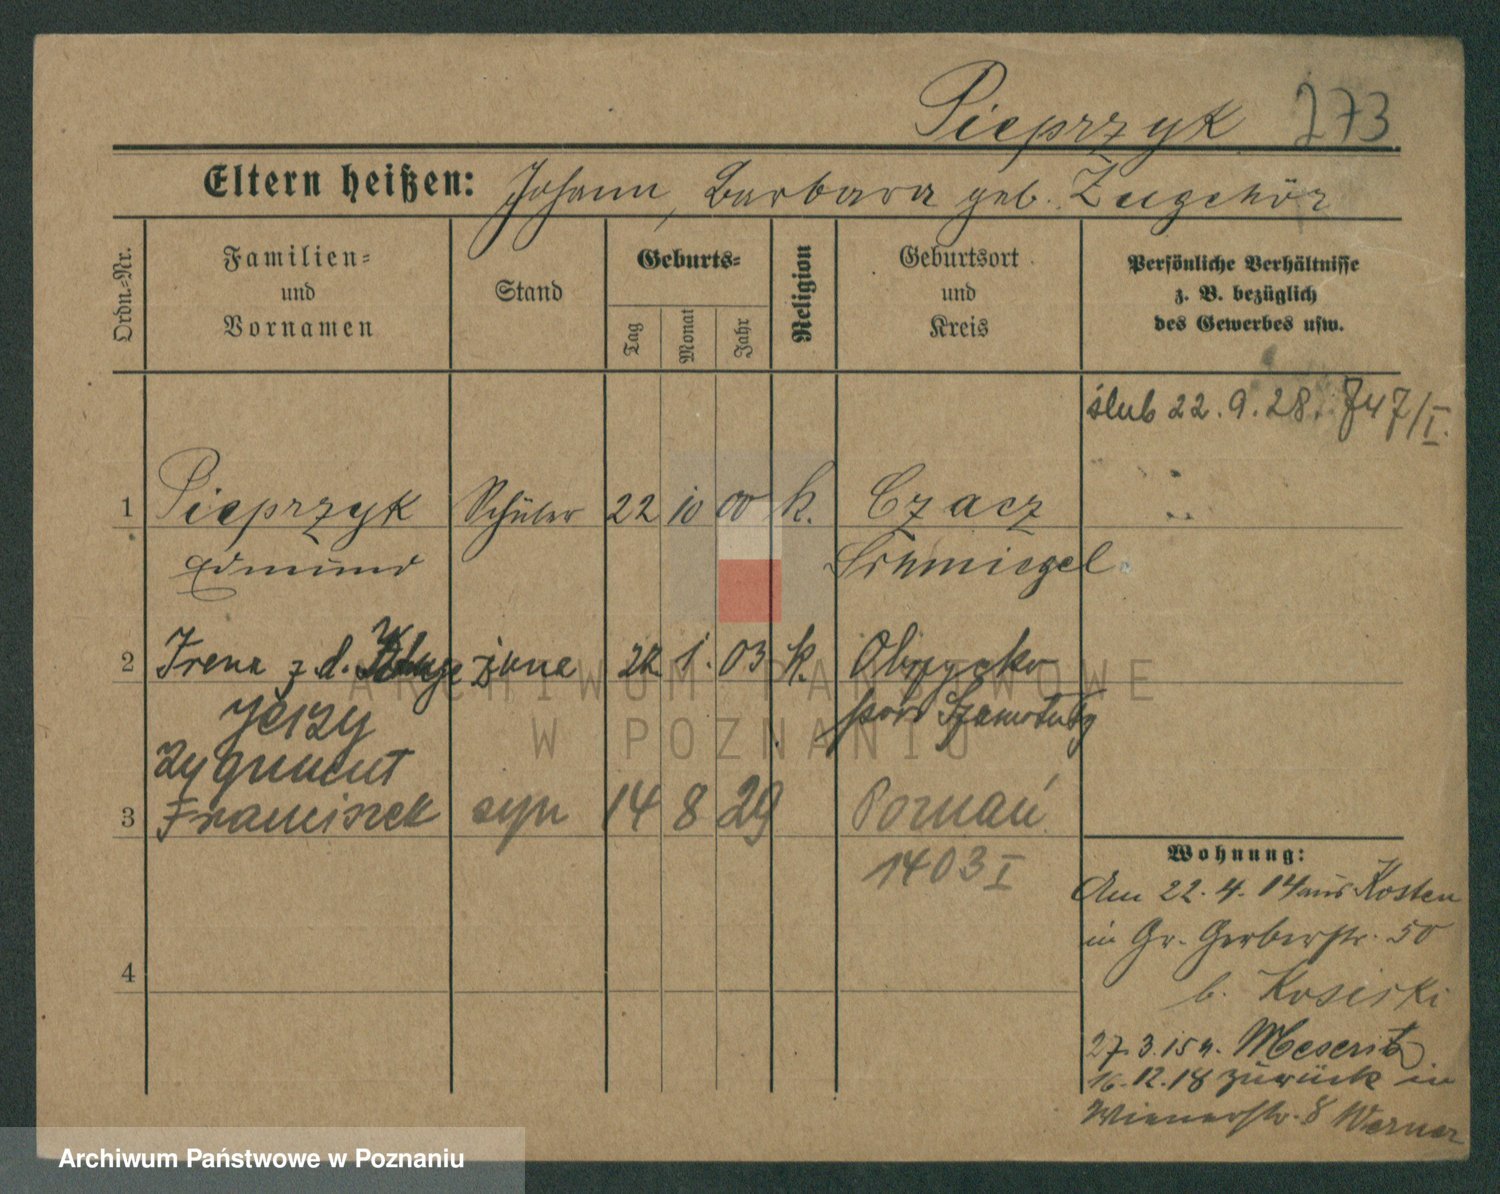 Pieprzyk 273
Eltern heißen: Johann, Barbara geb. Zugehör
Ordn.-Nr.
Familien-
und
Vornamen
Stand
Geburts-
Tag
Monat
Jahr
Religion
Geburtsort
und
Kreis
Persönliche Verhältnisse
z. B. bezüglich
des Gewerbes usw.
ślub 22.9.28. 747/I.
1 Pieprzyk Schüler 22 10 00 k. Czacz
Edmund Schmiegel
2 Irena z d. żona 1. 03 k. Obrzycko
pow Szamotuły
Jerzy
Zygmunt
3 Franciszek syn 14 8 29 Poznań
1403 I
4
Wohnung:
Am 22.4.14 aus Kosten
in Gr. Gerberstr. 50
b. Kosicki
27.3.15 n. Meseritz
16.12.18 zurück in
Wienerstr. 8 Werner
ARCHIWUM PAŃSTWOWE
W POZNANIU
Archiwum Państwowe w Poznaniu